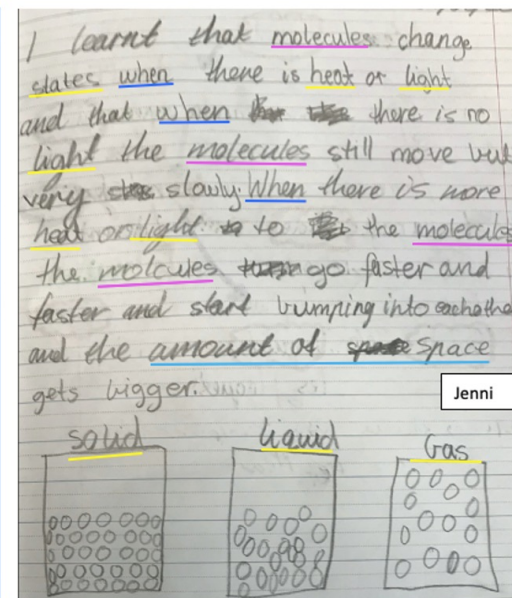 I learnt that molecules change
states when there is heat or light
and that when there is no
light the molecules still move but
very slowly. When there is more
heat or light to the molecules
the molcules go faster and
faster and start bumping into eachothe
and the amount of space
gets bigger.
Jenni
solid liquid Gas